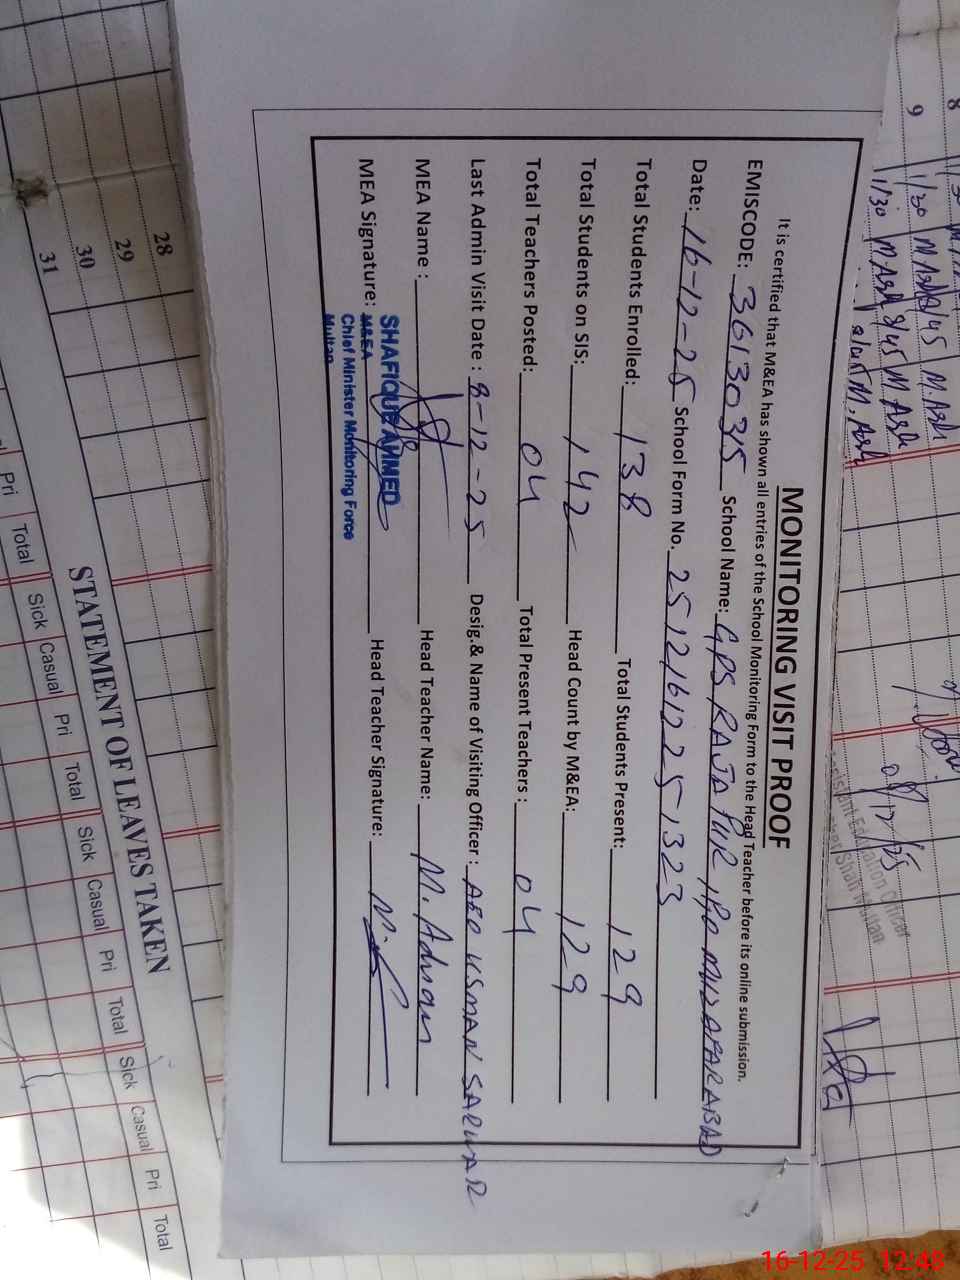 MONITORING VISIT PROOF
It is certified that M&EA has shown all entries of the School Monitoring Form to the Head Teacher before its online submission.
EMISCODE: 36130315 School Name: GPS RAJA PUR, P/O MUZAFARABAD
Date: 16-12-25 School Form No. 2512161225-1323
Total Students Enrolled: 138 Total Students Present: 129
Total Students on SIS: 142 Head Count by M&EA: 129
Total Teachers Posted: 04 Total Present Teachers : 04
Last Admin Visit Date : 8-12-25 Desig.& Name of Visiting Officer : AEO USMAN SARWAR
MEA Name : Head Teacher Name: M. Adnan
MEA Signature: Head Teacher Signature:
SHAFIQUE AHMED
M&EA
Chief Minister Monitoring Force
Multan
28
29
30
31
STATEMENT OF LEAVES TAKEN
Pri Total Sick Casual Pri Total Sick Casual Pri Total Sick Casual Pri Total
8
9
1/30 M Ash 2/45 M. Ash
1/30 M Ash 2/45 M Ash
Assistant Education Officer
Multan
16-12-25 12:48